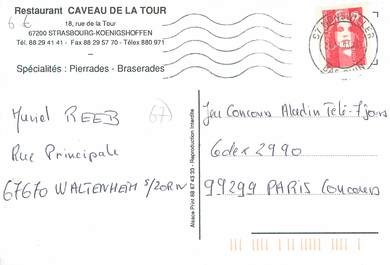 6 €
Restaurant CAVEAU DE LA TOUR
18, rue de la Tour
67200 STRASBOURG-KOENIGSHOFFEN
Tél. 88 29 41 41 - Fax 88 29 57 70 - Télex 880 971
Spécialités : Pierrades - Braserades
Muriel REEB
67
Rue Principale
67670 WALTENHEIM S/ZORN
Alsace Print 88 67 43 33 - Reproduction Interdite
Jeu Concours Aladin Télé-7 jours
Cedex 2990
99299 PARIS Concours